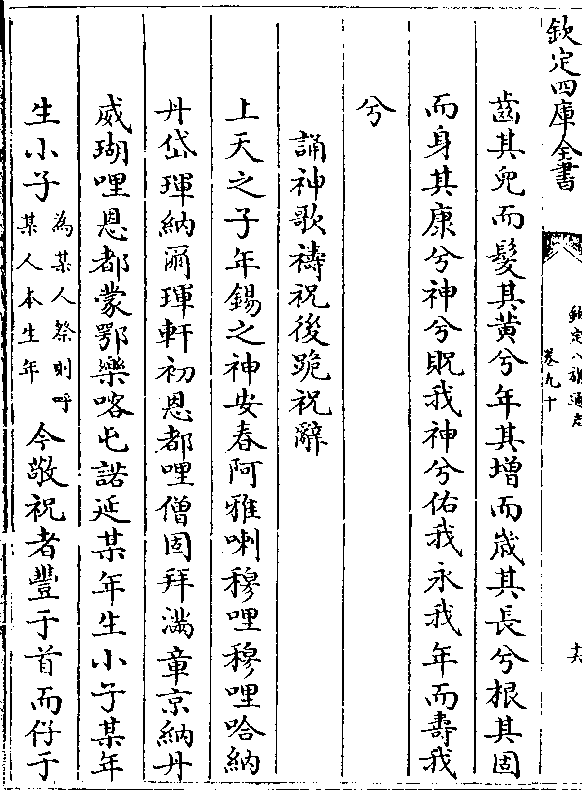 欽定四庫全書
欽定八旗通志
卷九十
十六
齒其皃而髮其黃兮年其增而歲其長兮根其固
而身其康兮神兮貺我神兮佑我永我年而壽我
兮
誦神歌禱祝後跪祝辭
上天之子年錫之神安春阿雅喇穆哩穆哩哈納
丹岱琿納爾琿軒初恩都哩僧固拜滿章京納丹
威瑚哩恩都蒙鄂樂喀屯諾延某年生小子某年
生小子為某人祭則呼某人本生年今敬祝者豐于首而仔于